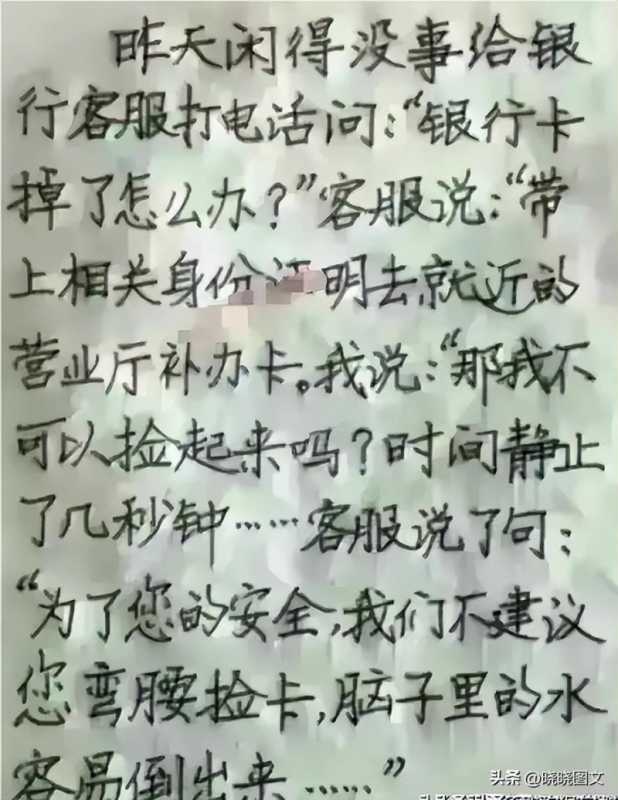 昨天闲得没事给银
行客服打电话问：“银行卡
掉了怎么办？”客服说：“带
上相关身份 明去就近的
营业厅补办卡。我说：“那我不
可以捡起来吗？时间静止
了几秒钟……客服说了句：
“为了您的安全，我们不建议
您弯腰捡卡，脑子里的水
容易倒出来……”
头条 @晓晓图文